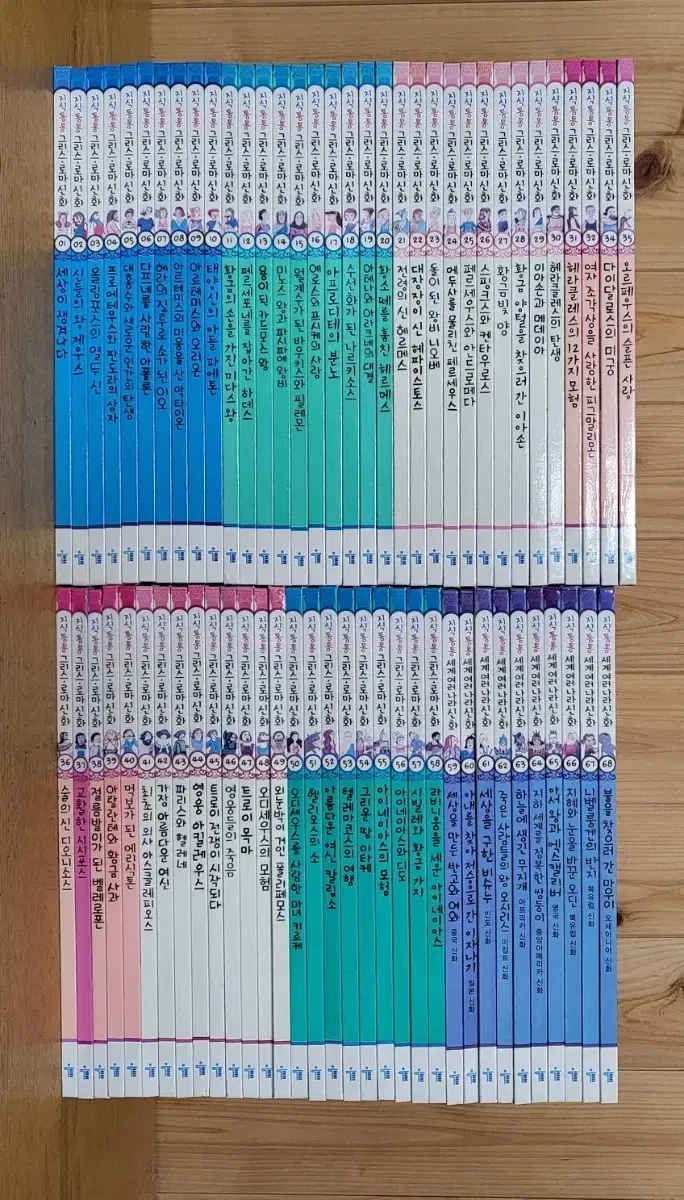 지식 통통 그리스·로마 신화 01 세상이 생겨나다
지식 통통 그리스·로마 신화 02 신들의 왕 제우스
지식 통통 그리스·로마 신화 03 올림포스의 열두 신
지식 통통 그리스·로마 신화 04 프로메테우스와 판도라의 상자
지식 통통 그리스·로마 신화 05 대홍수와 새로운 인간의 탄생
지식 통통 그리스·로마 신화 06 다프네를 사랑한 아폴론
지식 통통 그리스·로마 신화 07 헤라의 질투로 소가 된 이오
지식 통통 그리스·로마 신화 08 아르테미스의 미움을 산 악타이온
지식 통통 그리스·로마 신화 09 아르테미스와 오리온
지식 통통 그리스·로마 신화 10 태양신의 아들 파에톤
지식 통통 그리스·로마 신화 11 황금의 손을 가진 미다스 왕
지식 통통 그리스·로마 신화 12 페르세포네를 잡아간 하데스
지식 통통 그리스·로마 신화 13 용이 된 카드모스 왕
지식 통통 그리스·로마 신화 14 미노스 왕과 파시파에 왕비
지식 통통 그리스·로마 신화 15 월계수가 된 바우키스와 필레몬
지식 통통 그리스·로마 신화 16 에로스와 프시케의 사랑
지식 통통 그리스·로마 신화 17 아프로디테의 분노
지식 통통 그리스·로마 신화 18 수선화가 된 나르키소스
지식 통통 그리스·로마 신화 19 아테나와 아라크네의 대결
지식 통통 그리스·로마 신화 20 황소 떼를 훔친 헤르메스
지식 통통 그리스·로마 신화 21 전령의 신 헤르메스
지식 통통 그리스·로마 신화 22 대장장이 신 헤파이스토스
지식 통통 그리스·로마 신화 23 돌이 된 왕비 니오베
지식 통통 그리스·로마 신화 24 메두사를 물리친 페르세우스
지식 통통 그리스·로마 신화 25 페르세우스와 안드로메다
지식 통통 그리스·로마 신화 26 스핑크스와 켄타우로스
지식 통통 그리스·로마 신화 27 황금빛 양
지식 통통 그리스·로마 신화 28 황금 양털을 찾으러 간 이아손
지식 통통 그리스·로마 신화 29 이아손과 메데이아
지식 통통 그리스·로마 신화 30 헤라클레스의 탄생
지식 통통 그리스·로마 신화 31 헤라클레스의 12가지 모험
지식 통통 그리스·로마 신화 32 여자 조각상을 사랑한 피그말리온
지식 통통 그리스·로마 신화 34 다이달로스의 미궁
지식 통통 그리스·로마 신화 35 오르페우스의 슬픈 사랑
지식 통통 그리스·로마 신화 36 술의 신 디오니소스
지식 통통 그리스·로마 신화 37 교활한 시시포스
지식 통통 그리스·로마 신화 38 절름발이가 된 벨레로폰
지식 통통 그리스·로마 신화 39 아탈란테와 황금 사과
지식 통통 그리스·로마 신화 40 먹보가 된 에리식톤
지식 통통 그리스·로마 신화 41 최초의 의사 아스클레피오스
지식 통통 그리스·로마 신화 42 가장 아름다운 여신
지식 통통 그리스·로마 신화 43 파리스와 헬레네
지식 통통 그리스·로마 신화 44 영웅 아킬레우스
지식 통통 그리스·로마 신화 45 트로이 전쟁이 시작되다
지식 통통 그리스·로마 신화 46 영웅들의 죽음
지식 통통 그리스·로마 신화 47 트로이 목마
지식 통통 그리스·로마 신화 48 오디세우스의 모험
지식 통통 그리스·로마 신화 49 외눈박이 거인 폴리페모스
지식 통통 그리스·로마 신화 50 오디세우스를 사랑한 마녀 키르케
지식 통통 그리스·로마 신화 51 헬리오스의 소
지식 통통 그리스·로마 신화 52 아름다운 여신 칼립소
지식 통통 그리스·로마 신화 53 텔레마코스의 여행
지식 통통 그리스·로마 신화 54 그리운 땅 이타케
지식 통통 그리스·로마 신화 55 아이네이아스의 모험
지식 통통 그리스·로마 신화 56 아이네이아스와 디도
지식 통통 그리스·로마 신화 57 시빌레와 황금 가지
지식 통통 그리스·로마 신화 58 라비니움을 세운 아이네이아스
지식 통통 세계 여러 나라 신화 59 세상을 만든 반고와 여와 중국 신화
지식 통통 세계 여러 나라 신화 60 아내를 찾아 저승으로 간 이자나기 일본 신화
지식 통통 세계 여러 나라 신화 61 세상을 구한 비슈누 인도 신화
지식 통통 세계 여러 나라 신화 62 죽은 사람들의 왕 오시리스 이집트 신화
지식 통통 세계 여러 나라 신화 63 하늘에 생긴 무지개 아프리카 신화
지식 통통 세계 여러 나라 신화 64 지하 세계를 정복한 쌍둥이 중앙아메리카 신화
지식 통통 세계 여러 나라 신화 65 아서 왕과 엑스캘리버 영국 신화
지식 통통 세계 여러 나라 신화 66 지혜와 눈을 바꾼 오딘 북유럽 신화
지식 통통 세계 여러 나라 신화 67 니벨룽겐의 반지 북유럽 신화
지식 통통 세계 여러 나라 신화 68 불을 찾으러 간 마우이 오세아니아 신화